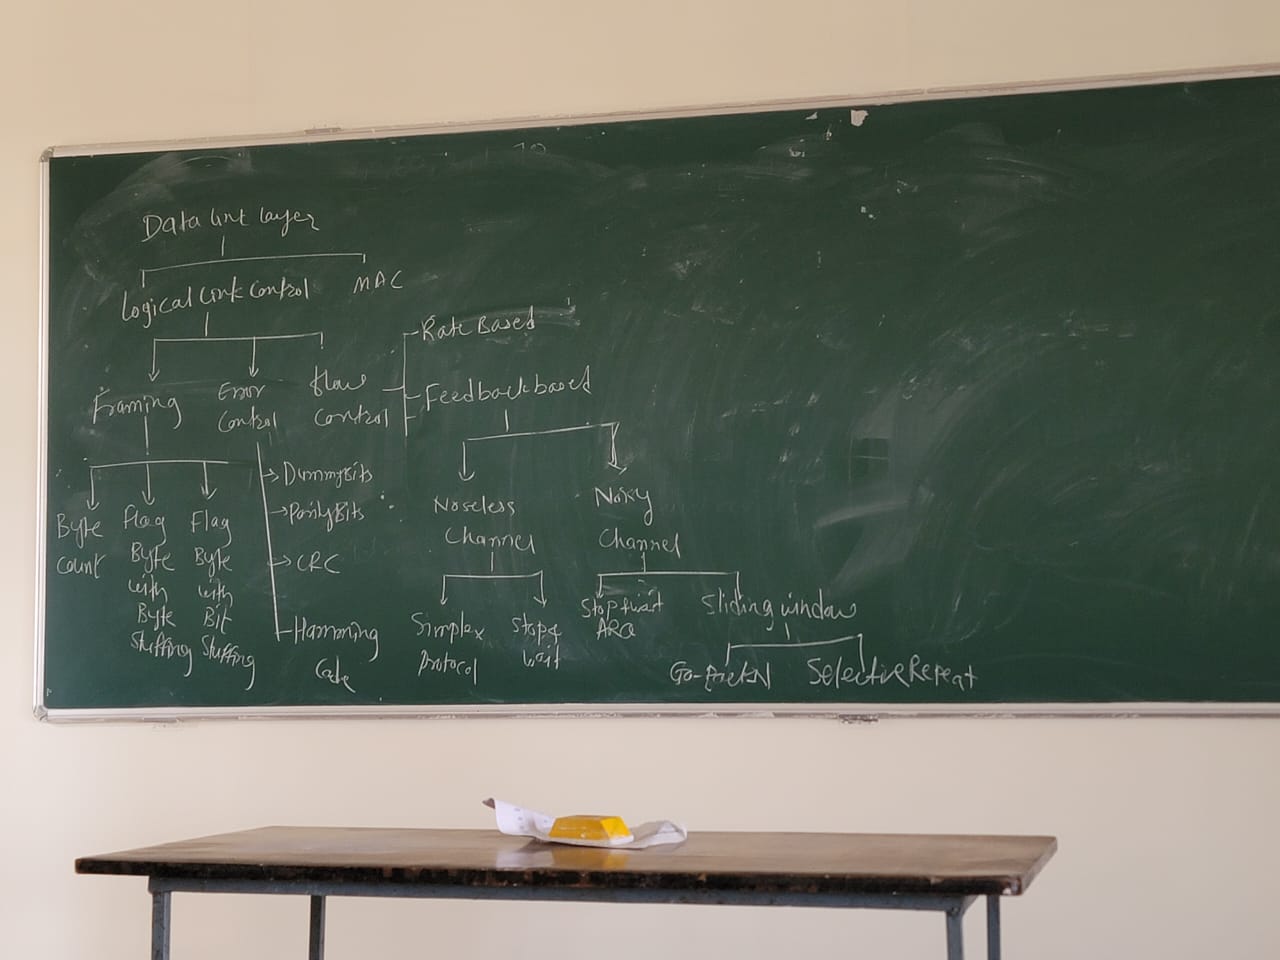 Data link layer
Logical Link Control
MAC
Framing
Error
Control
flow
control
Rate Based
Feedback based
Byte
count
Flag
Byte
with
Byte
Stuffing
Flag
Byte
with
Bit
Stuffing
DummyBits
ParityBits
CRC
Hamming
Code
Noseless
Channel
Noisy
Channel
Simplex
Protocol
Stop &
wait
Stop & wait
ARQ
Sliding window
Go-BackN
Selective Repeat